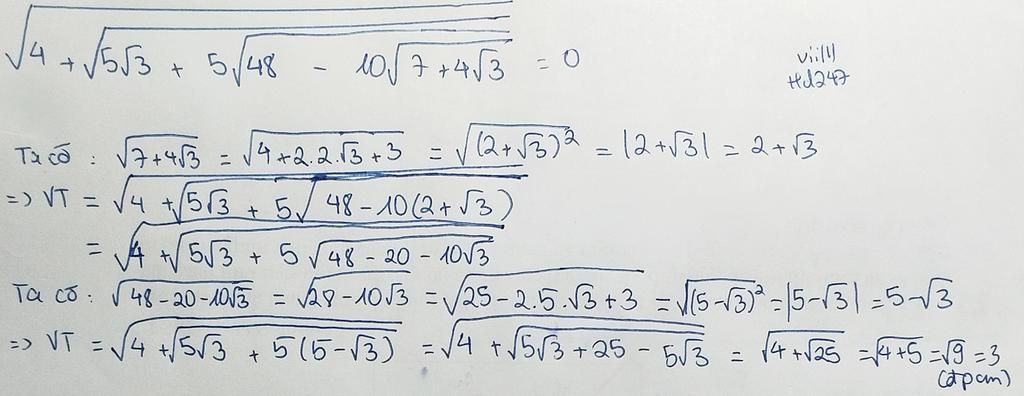 √(4 + √(5√3 + 5√(48 - 10√(7+4√3)))) = 0
viilll
Hd247
Ta có : √(7+4√3) = √(4+2.2.√3+3) = √((2+√3)²) = |2+√3| = 2+√3
=> VT = √(4 + √(5√3 + 5√(48-10(2+√3))))
= √(4 + √(5√3 + 5√(48-20-10√3)))
Ta có : √(48-20-10√3) = √(28-10√3) = √(25-2.5.√3+3) = √((5-√3)²) = |5-√3| = 5-√3
=> VT = √(4 + √(5√3 + 5(5-√3))) = √(4 + √(5√3+25-5√3)) = √(4+√25) = √(4+5) = √9 = 3
(đpcm)